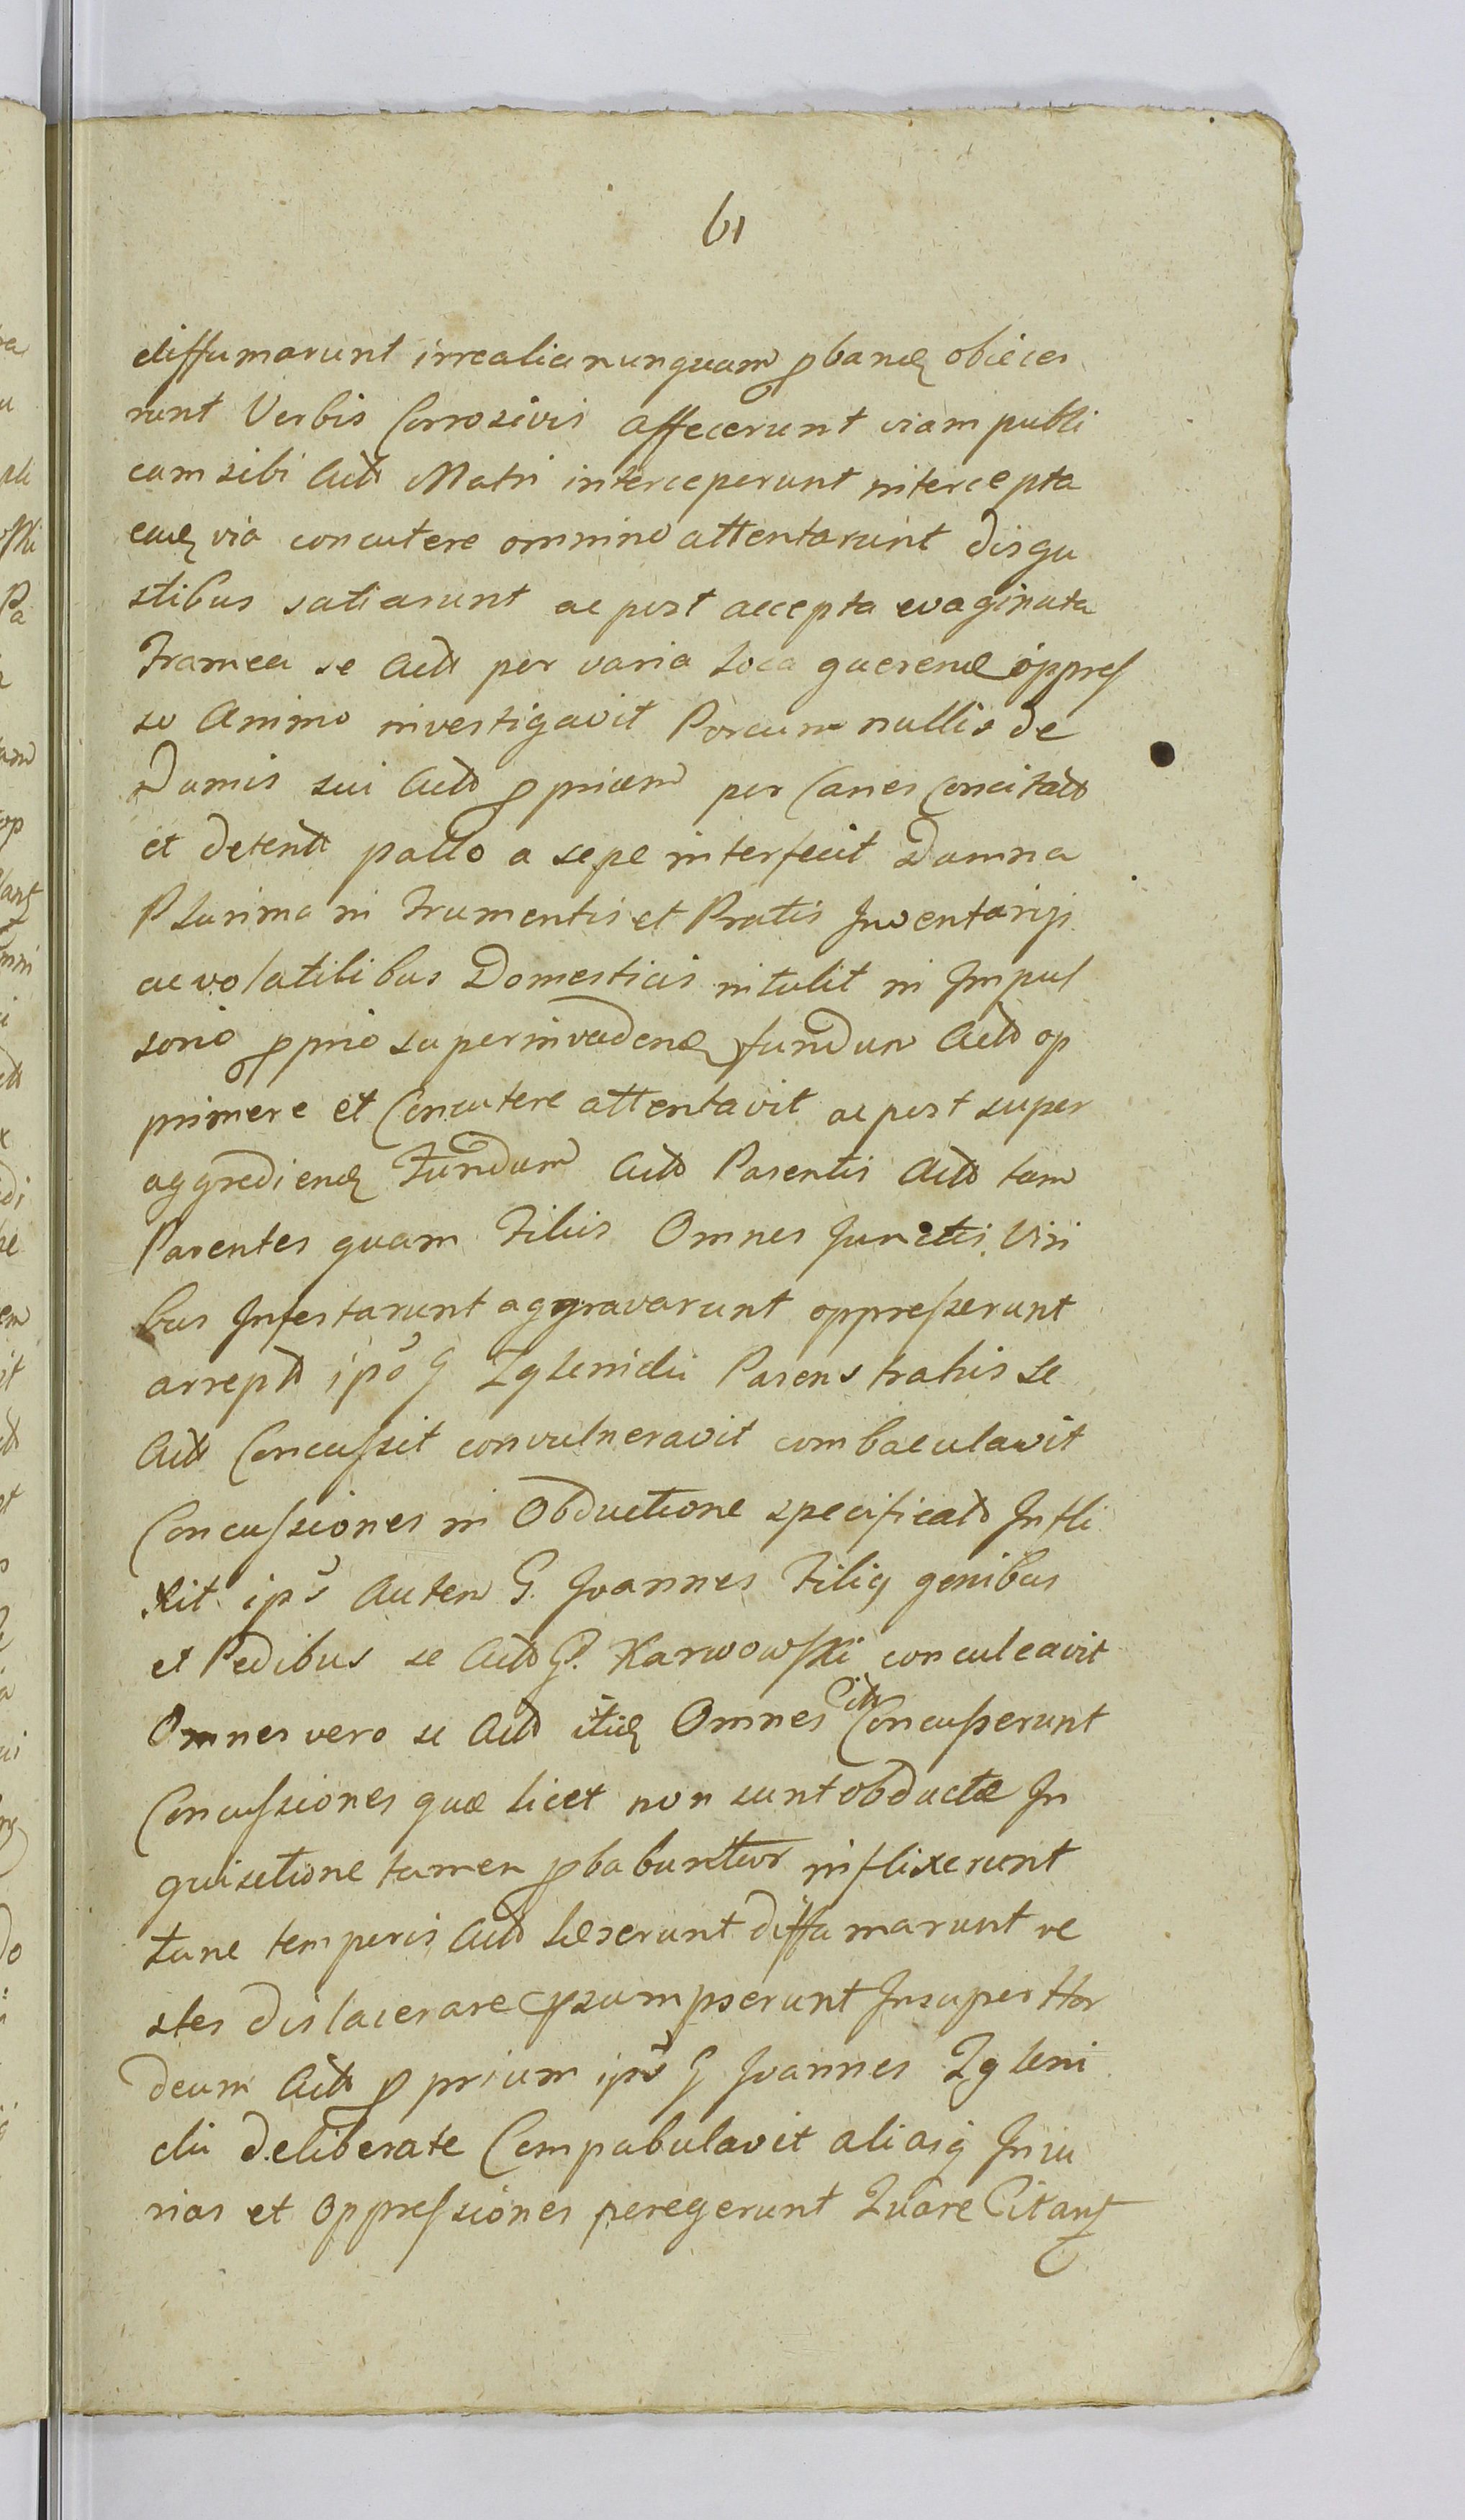 61
diffamarunt irrealia nunquam pband obiece
runt Verbis Corrosivis affecerunt viam publi
cam sibi Actt Matri interceperunt intercepta
eaq via concutere omnino attentarunt disgu
stibus satiarunt ac post accepta evaginata
Framea se Actt per varia Loca quaerend oppreſ
so Animo investigavit Porcum nullis de
Damis sui Actt pprium per Canes Concitatt
et detentt pallo a sepe interfecit Damna
Plurima in Frumentis et Pratis Inventarijs
ac volatilibus Domesticis intulit in Impul
sorio pprio superinvadend fundum Actt op
primere et Concutere attentavit ac post super
aggrediend Fundum Actt Parentis Actt tam
Parentes quam Filius Omnes Junctis Viri
bus Infestarunt aggravarunt oppreſserunt
arreptt ips G Zglenicki Parens trahis se
Actt Concuſsit convulneravit combaculavit
Concuſsiones in Obductione specificatt Infli
xit ips Autem G. Joannes Filiq genibus
et Pedibus se Actt G. Karwowſki conculcavit
Omnes vero se Actt itid Omnes Citt Concuſserunt
Concuſsiones quæ licet non sunt obductæ In
quisitione tamen pbabuntur inflixerunt
tunc temporis Actt læserunt diffamarunt ve
stes dislacerare pſumpserunt Insuper Hor
deum Actt pprium ips G Joannes Zgleni
cki deliberate Compabulavit aliasq Iniu
rias et Oppreſsiones peregerunt Quare Citant